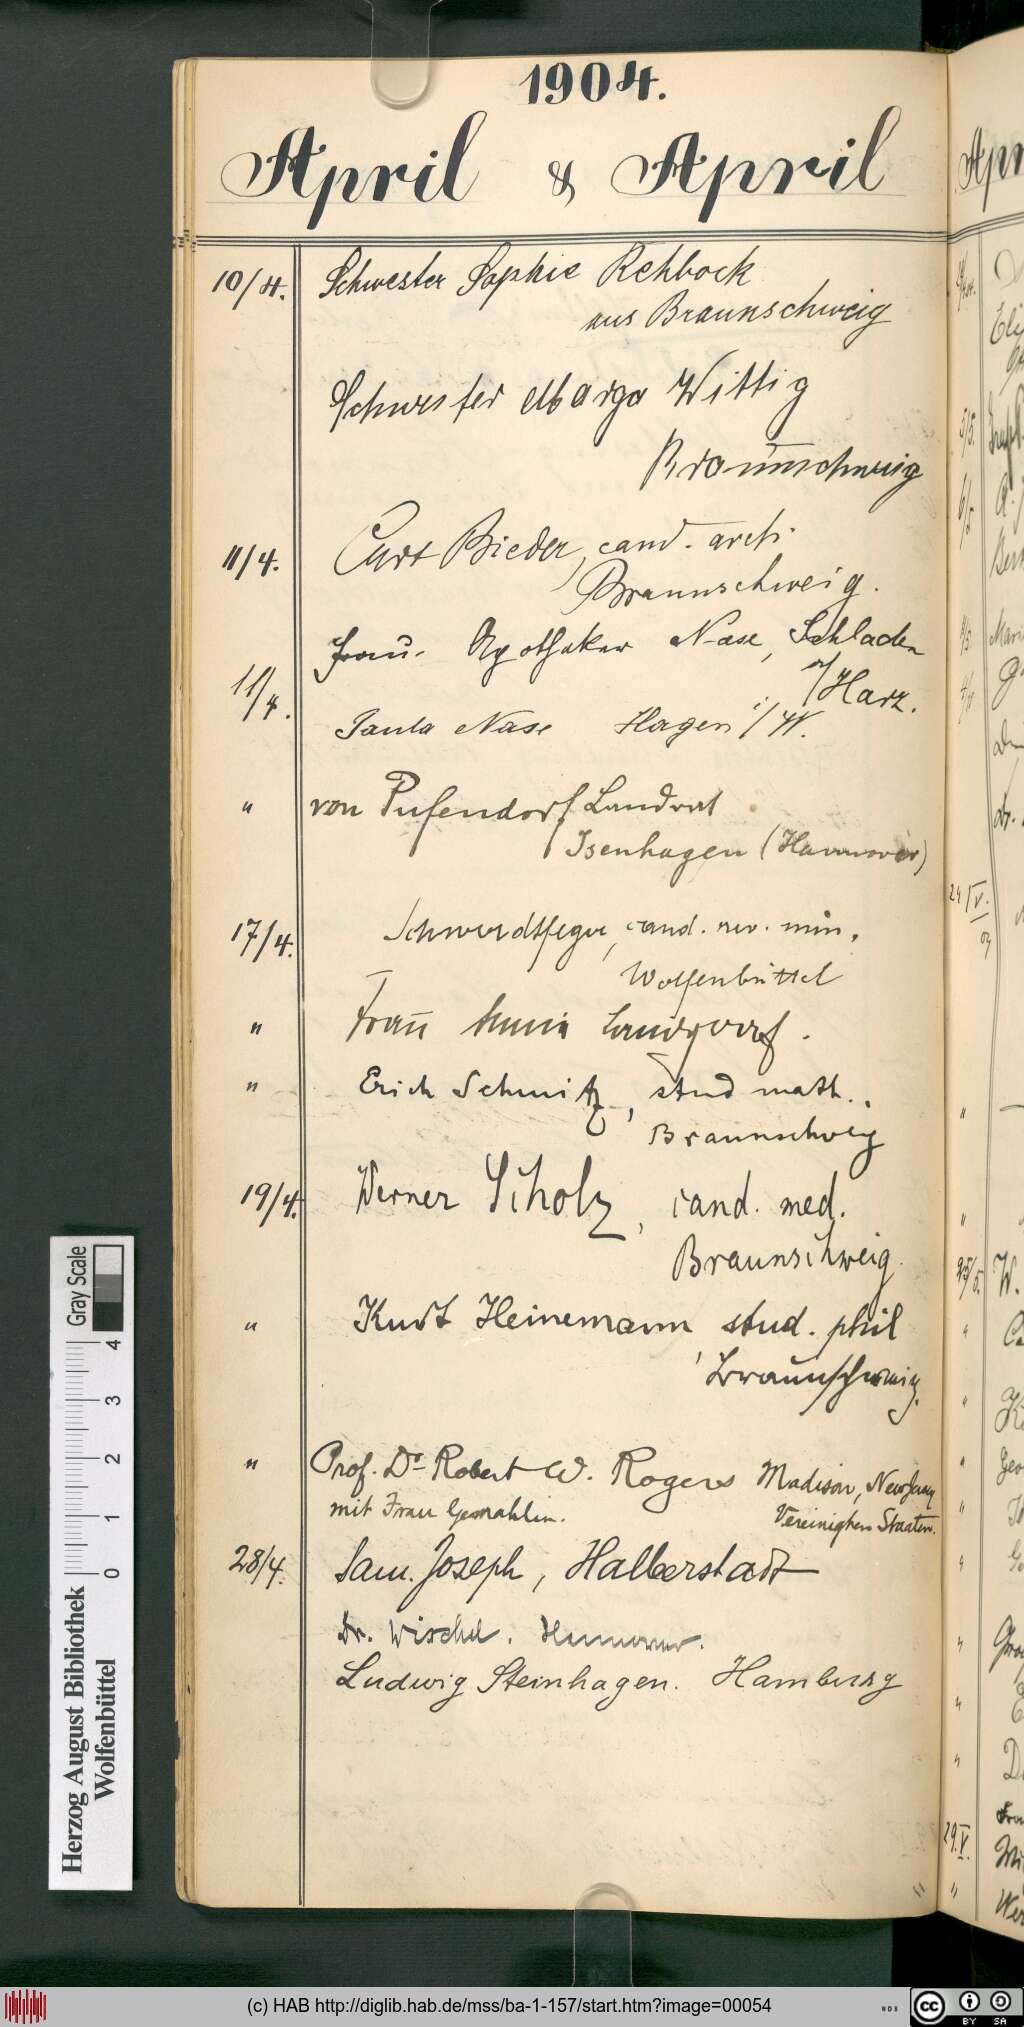 1904.
April & April
10/4. Schwester Sophie Rehbock
aus Braunschweig
Schwester Marga Wittig
Braunschweig
11/4. Curt Bieder, cand. arch.
Braunschweig.
Frau Apotheker Nase, Schladen
a/Harz.
11/4.
Paula Nase Hagen i/W.
" von Pufendorf Landrat
Isenhagen (Hannover)
17/4. Schwerdtfeger, cand. rev. min.
Wolfenbüttel
" Frau
" Erich Schmitz, stud math.
Braunschweig
19/4. Werner Scholz, cand. med.
Braunschweig.
" Kurt Heinemann, stud. phil
Braunschweig.
" Prof. Dr. Robert W. Rogers Madison, New Jersey
mit Frau Gemahlin. Vereinigten Staaten.
28/4. Sam. Joseph, Halberstadt
Dr. Wischel. Hannover.
Ludwig Steinhagen. Hamburg
Gray Scale
0 1 2 3 4
Herzog August Bibliothek
Wolfenbüttel
(c) HAB http://diglib.hab.de/mss/ba-1-157/start.htm?image=00054
WDB
cc BY SA